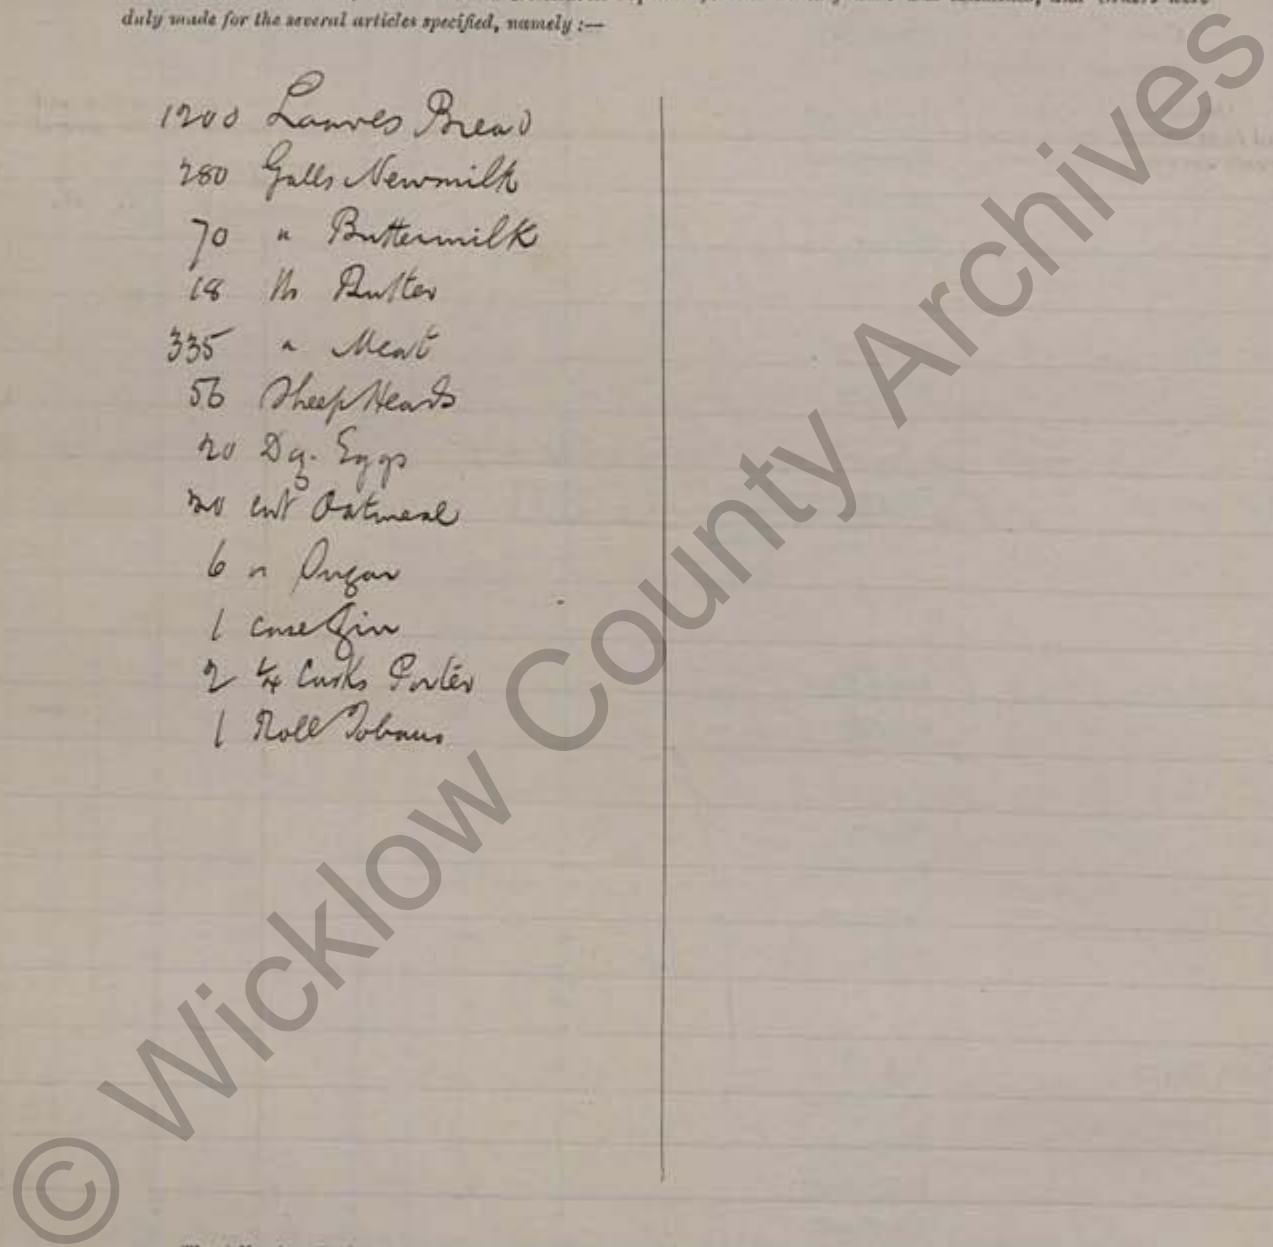 and Orders were
duly made for the several articles specified, namely :—
1200 Loaves Bread
280 Galls Newmilk
70 " Buttermilk
18 lb Butter
335 " Meat
56 Sheep Heads
20 Dz. Eggs
20 cwt Oatmeal
6 " Sugar
1 case Gin
2 ¼ Casks Porter
1 Roll Tobacco
© Wicklow County Archives